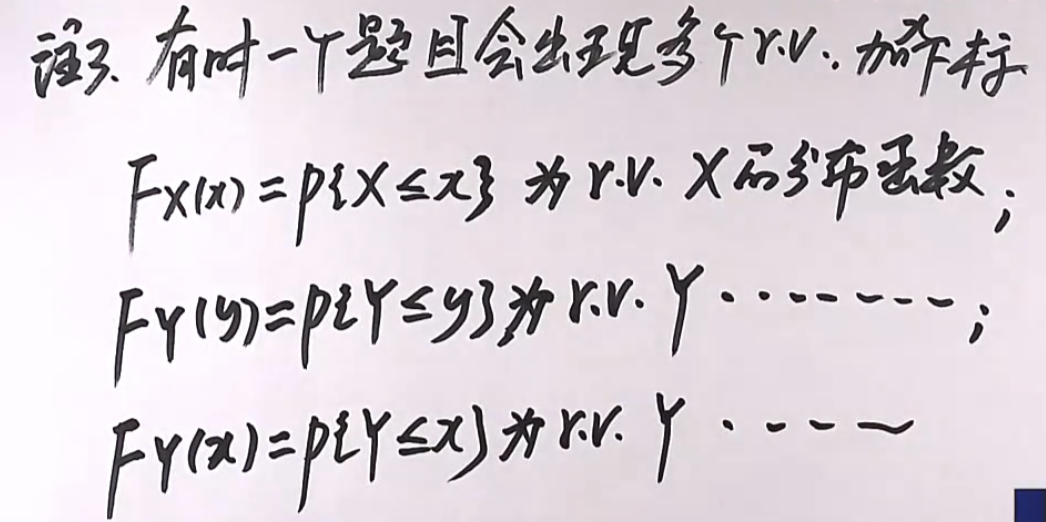 注3. 有时一个题目会出现多个r.v.,加下标
F_X(x)=P{X≤x} 为 r.v. X的分布函数;
F_Y(y)=P{Y≤y}为 r.v. Y ········;
F_Y(x)=P{Y≤x}为 r.v. Y ·····